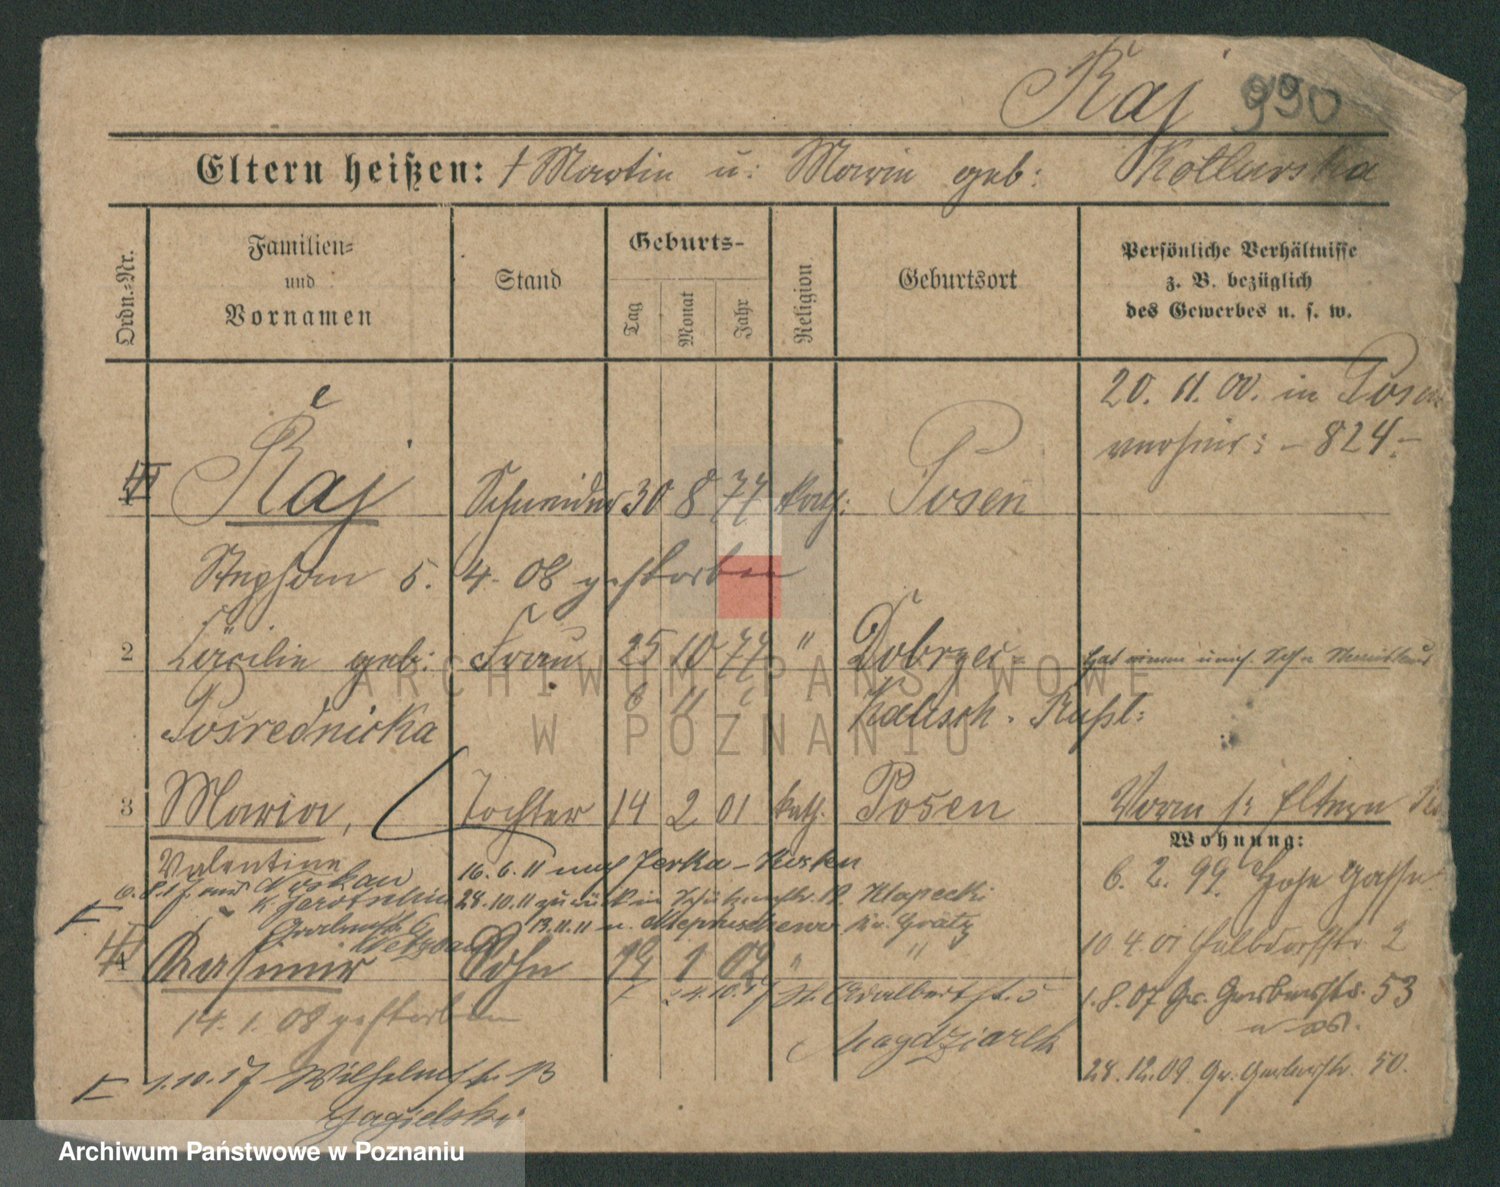 Raj 990
Eltern heißen: † Martin u: Marie geb: Kotlarska
Ordn.-Nr.
Familien-
und
Vornamen
Stand
Geburts-
Tag
Monat
Jahr
Religion
Geburtsort
Persönliche Verhältnisse
z. B. bezüglich
des Gewerbes u. s. w.
20. 11. 00. in Posen
- 824 -
Raj Schneider 30 8 77 kath: Posen
Stephan 5. 4. 08 gestorben
2 Cäcilie geb: Frau 25 10 77 " Dobrzec-
Pośrednicka Kalisch. Rußl:
3 Maria, Tochter 14 2 01 kath. Posen
Vorm s: Eltern
Wohnung:
Valentine
16. 6. 11 nach Jerka - Kosten
6. 2. 99. Hohe Gasse
28.10.11 zurück in
13.11.11 n. Kr. Grätz
4 Kasimir Sohn 19 1 02 " "
10. 4. 01 Halbdorfstr. 2
24.10.17 St. Adalbertstr. 5
1. 8. 07 Gr. Gerberstr. 53
14. 1. 08 gestorben
Magdziarek
28.12.09 Gr. Gerberstr. 50.
1.10.17 Wilhelmstr. 13
Jagielski
ARCHIWUM PAŃSTWOWE
W POZNANIU
Archiwum Państwowe w Poznaniu